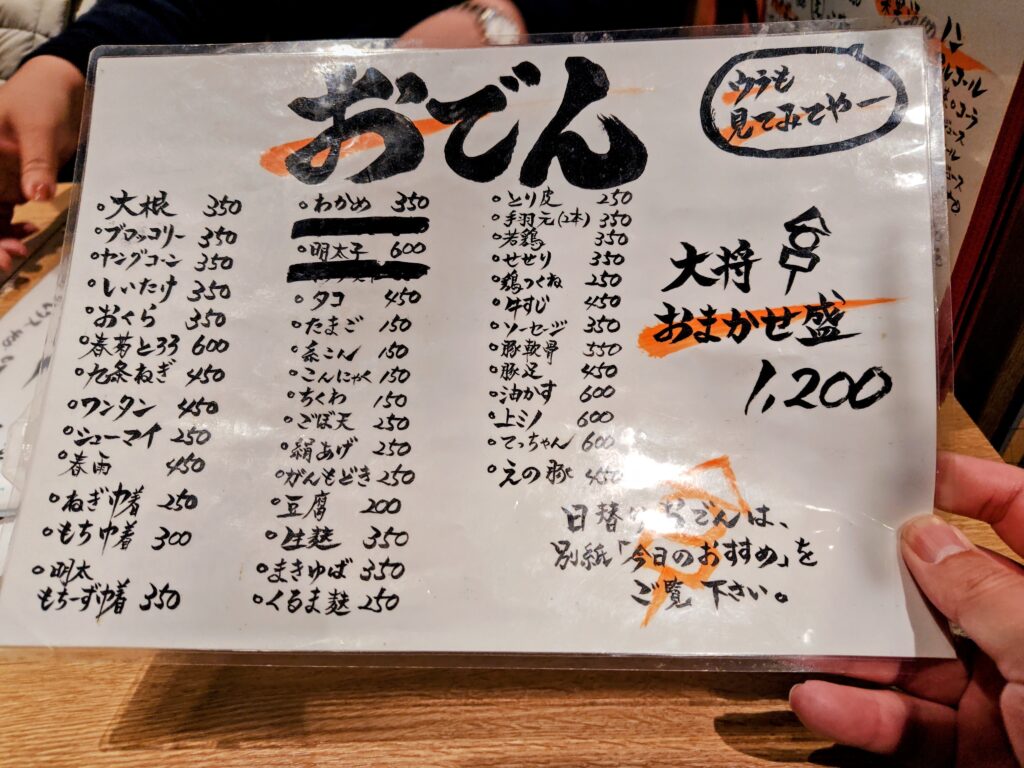 おでん
ウラも
見てみてやー
・大根 350
・ブロッコリー 350
・ヤングコーン 350
・しいたけ 350
・おくら 350
・春芽とろろ 600
・九条ねぎ 450
・ワンタン 450
・シューマイ 250
・春雨 450
・ねぎ巾着 250
・もち巾着 300
・明太
もちーず巾着 350
・わかめ 350
・明太子 600
・タコ 450
・たまご 150
・糸こん 150
・こんにゃく 150
・ちくわ 150
・ごぼ天 250
・絹あげ 250
・がんもどき 250
・豆腐 200
・生麩 350
・まきゆば 350
・くるま麩 250
・とり皮 250
・手羽元(2本) 350
・若鶏 350
・せせり 350
・鶏つくね 250
・牛すじ 450
・ソーセージ 350
・豚軟骨 550
・豚足 450
・油かす 600
・上ミノ 600
・てっちゃん 600
・えの豚 450
大将
おまかせ盛
1,200
日替りおでんは、
別紙「今日のおすすめ」を
ご覧下さい。